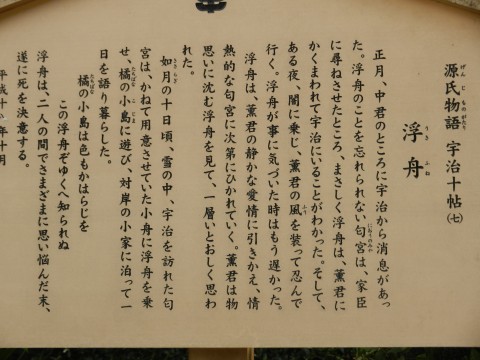 源氏物語 宇治十帖(七)
げんじものがたり
浮舟
うきふね
正月、中君のところに宇治から消息があっ
た。浮舟のことを忘れられない匂宮は、家臣
におうのみや
に尋ねさせたところ、まさしく浮舟は、薫君に
かくまわれて宇治にいることがわかった。そして、
ある夜、闇に乗じ、薫君の風を装って忍んで
ふう
行く。浮舟が事に気づいた時はもう遅かった。
浮舟は、薫君の静かな愛情に引きかえ、情
熱的な匂宮に次第にひかれていく。薫君は物
思いに沈む浮舟を見て、一層いとおしく思わ
れた。
如月の十日頃、雪の中、宇治を訪れた匂
きさらぎ
宮は、かねて用意させていた小舟に浮舟を乗
せ、橘の小島に遊び、対岸の小家に泊って一
たちばな こじま
日を語り暮らした。
橘の小島は色もかはらじを
たちばな
この浮舟ぞゆくへ知られぬ
浮舟は、二人の間でさまざまに思い悩んだ末、
遂に死を決意する。
平成十 年十月